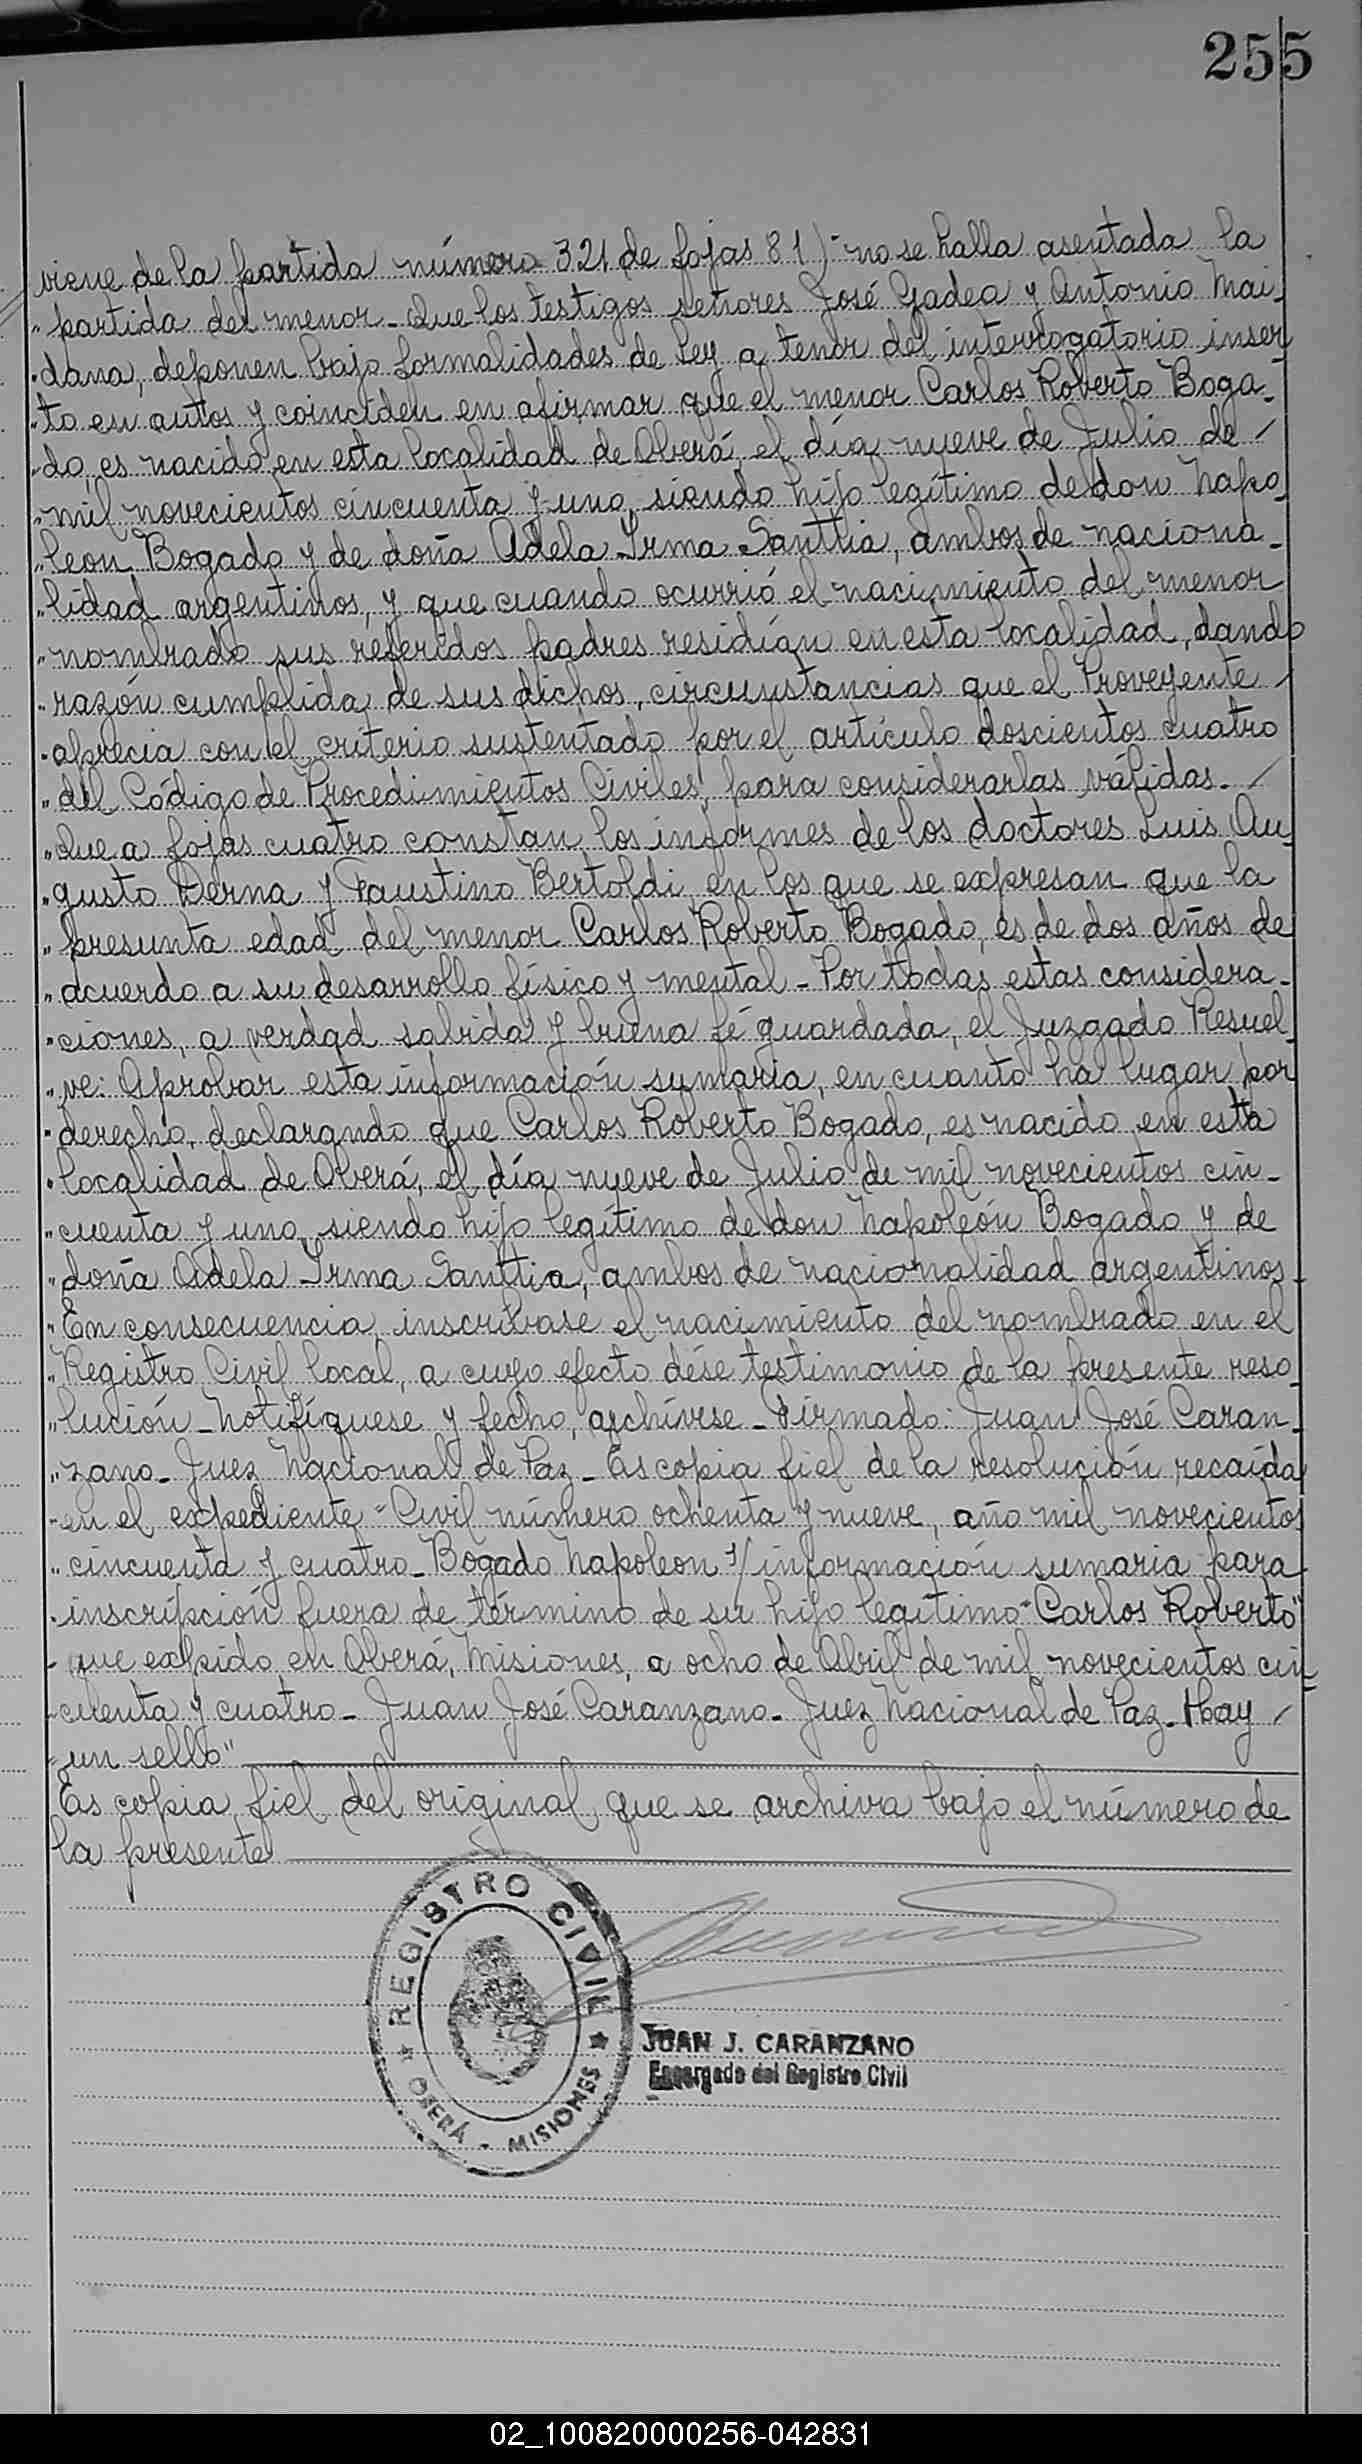 255
viene de la partida número 321 de fojas 81)- no se halla asentada la
"partida del menor_ Que los testigos señores José Gadea y Antonio Mai-
"dana, deponen bajo formalidades de Ley a tenor del interrogatorio inser
"to en autos y coinciden en afirmar que el menor Carlos Roberto Boga-
"do, es nacido en esta localidad de Oberá, el día nueve de Julio de /
"mil novecientos cincuenta y uno, siendo hijo legítimo de don Napo
"leon Bogado y de doña Adela Irma Santtia, ambos de naciona-
"lidad argentinos, y que cuando ocurrió el nacimiento del menor
"nombrado sus referidos padres residían en esta localidad, dando
"razón cumplida de sus dichos, circunstancias que el Proveyente /
"aprecia con el criterio sustentado por el artículo doscientos cuatro
"del Código de Procedimientos Civiles, para considerarlas válidas. /
"Que a fojas cuatro constan los informes de los doctores Luis Au
"gusto Derna y Faustino Bertoldi, en los que se expresan que la
"presunta edad del menor Carlos Roberto Bogado, es de dos años de
"acuerdo a su desarrollo físico y mental - Por todas estas considera-
"ciones, a verdad sabida y buena fé guardada, el Juzgado Resuel
"ve: Aprobar esta información sumaria, en cuanto ha lugar por
"derecho, declarando que Carlos Roberto Bogado, es nacido en esta
"localidad de Oberá, el día nueve de Julio de mil novecientos cin-
"cuenta y uno, siendo hijo legítimo de don Napoleón Bogado y de
"doña Adela Irma Santtia, ambos de nacionalidad argentinos_
"En consecuencia, inscríbase el nacimiento del nombrado en el
"Registro Civil local, a cuyo efecto dése testimonio de la presente reso
"lución_ Notifíquese y fecho, archívese_ Firmado: Juan José Caran-
"zano_ Juez Nacional de Paz_ Es copia fiel de la resolución recaída
"en el expediente "Civil número ochenta y nueve, año mil novecientos
"cincuenta y cuatro_ Bogado Napoleon s/información sumaria para
"inscripción fuera de término de su hijo legítimo "Carlos Roberto"
"que expido en Oberá, Misiones, a ocho de Abril de mil novecientos cin
"cuenta y cuatro_ Juan José Caranzano_ Juez Nacional de Paz_ Hay /
"un sello"
Es copia fiel del original, que se archiva bajo el número de
la presente
REGISTRO CIVIL
OBERÁ - MISIONES
JUAN J. CARANZANO
Encargado del Registro Civil
02_100820000256-042831